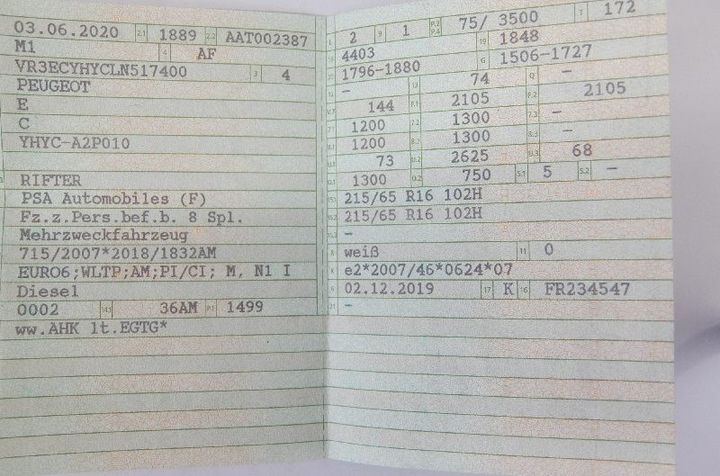 03.06.2020 2.1 1889 2.2 AAT002387
M1 4 AF
VR3ECYHYCLN517400 3 4
PEUGEOT
E
C
YHYC-A2P010
RIFTER
PSA Automobiles (F)
Fz.z.Pers.bef.b. 8 Spl.
Mehrzweckfahrzeug
715/2007*2018/1832AM
EURO6;WLTP;AM;PI/CI; M, N1 I
Diesel
0002 14.1 36AM P.1 1499
ww.AHK lt.EGTG*
2 9 1 P.2 P.4 75/ 3500 T 172
4403 19 1848
1796-1880 G 1506-1727
- 13 74 Q -
144 F.1 2105 F.2 2105
1200 7.2 1300 7.3 -
1200 8.2 1300 8.3 -
73 U.2 2625 U.3 68
1300 O.2 750 S.1 5 S.2 -
215/65 R16 102H
215/65 R16 102H
-
weiß 11 0
e2*2007/46*0624*07
02.12.2019 17 K 16 FR234547
-